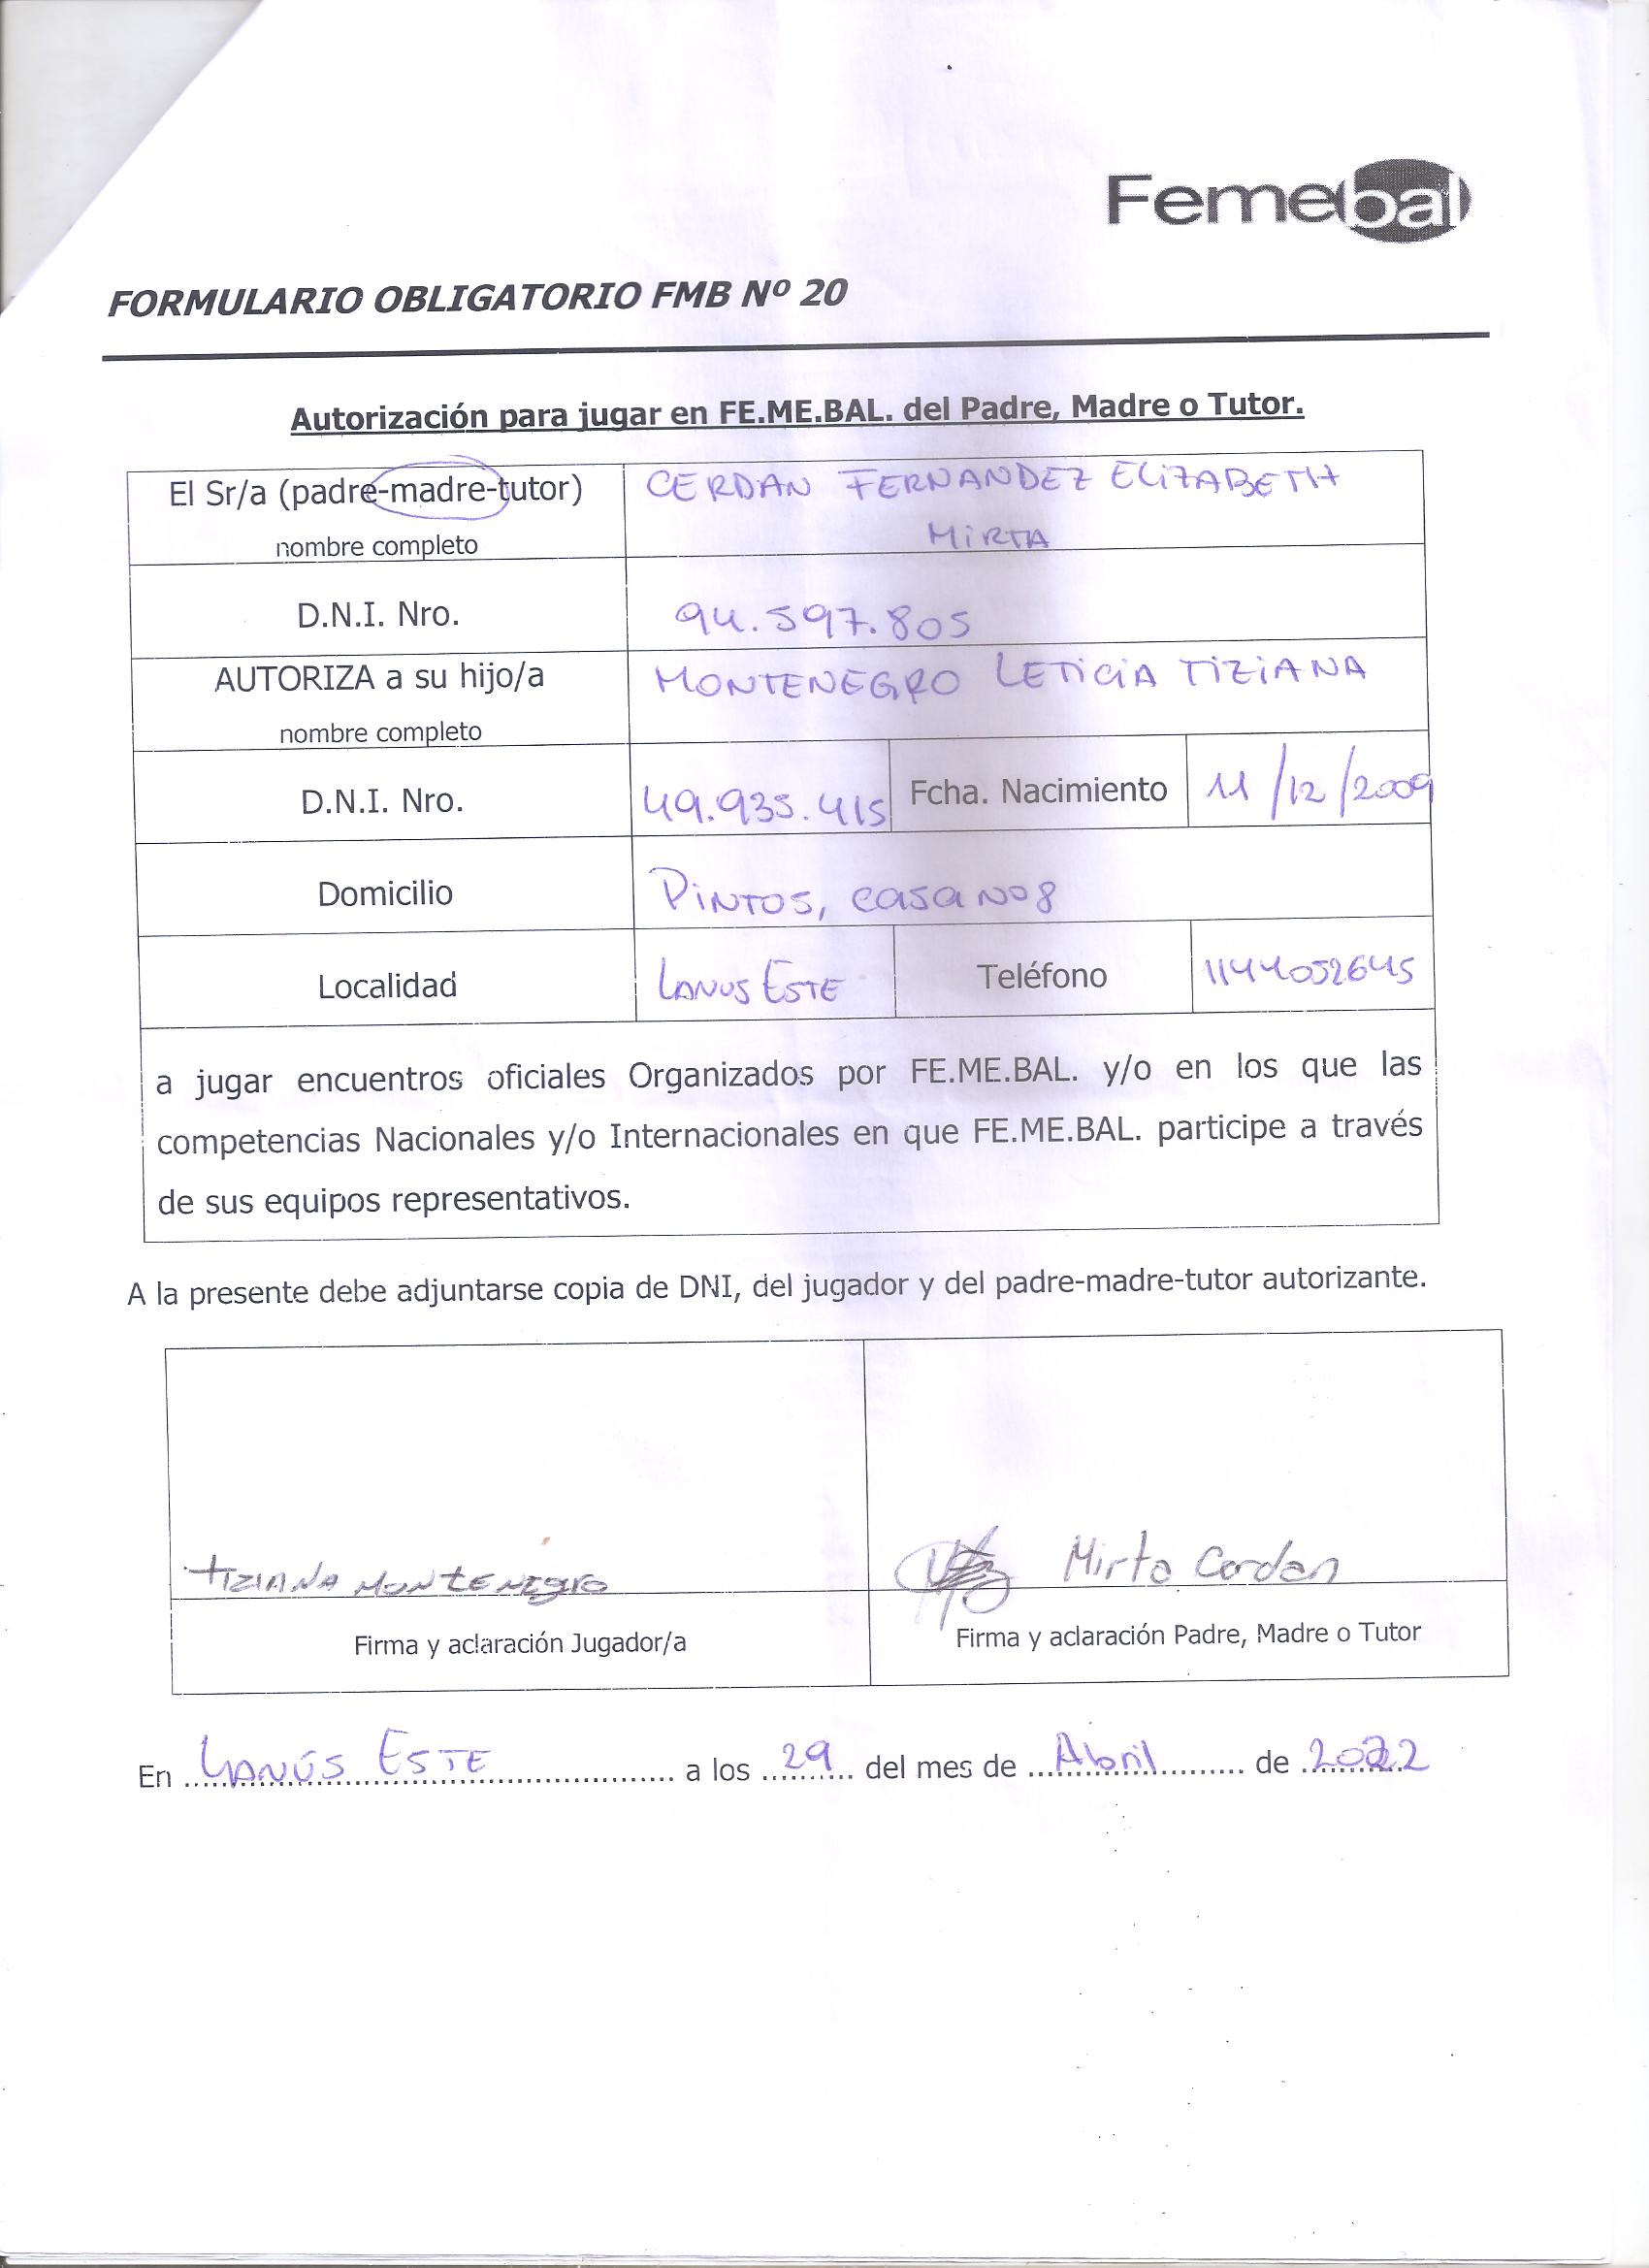 Femebal
FORMULARIO OBLIGATORIO FMB Nº 20
Autorización para jugar en FE.ME.BAL. del Padre, Madre o Tutor.
El Sr/a (padre-madre-tutor) CERDAN FERNANDEZ ELIZABETH
nombre completo MIRTA
D.N.I. Nro. 94.597.805
AUTORIZA a su hijo/a MONTENEGRO LETICIA TIZIANA
nombre completo
D.N.I. Nro. 49.935.415 Fcha. Nacimiento 11/12/2009
Domicilio PINTOS, casa Nº8
Localidad LANUS ESTE Teléfono 1144052645
a jugar encuentros oficiales Organizados por FE.ME.BAL. y/o en los que las
competencias Nacionales y/o Internacionales en que FE.ME.BAL. participe a través
de sus equipos representativos.
A la presente debe adjuntarse copia de DNI, del jugador y del padre-madre-tutor autorizante.
TIZIANA MONTENEgro Mirta Cerdan
Firma y aclaración Jugador/a Firma y aclaración Padre, Madre o Tutor
En LANÚS ESTE a los 29 del mes de Abril de 2022